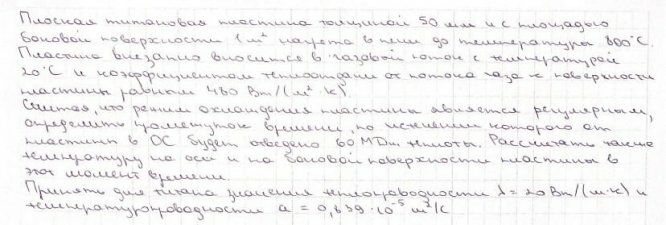 Плоская титановая пластина толщиной 50 мм и с площадью
боковой поверхности 1 м² нагрета в печи до температуры 800°C.
Пластина внезапно вносится в газовой поток с температурой
20°C и коэффициентом теплоотдачи от потока газа к поверхности
пластины равным 480 Вт/(м²·К).
Считая, что режим охлаждения пластины является регулярным,
определить промежуток времени, по истечении которого от
пластины в ОС будет отведено 60 МДж теплоты. Рассчитать также
температуру на оси и на боковой поверхности пластины в
этот момент времени.
Принять для титана значения теплопроводности λ = 20 Вт/(м·К) и
температуропроводности a = 0,839·10⁻⁵ м²/с